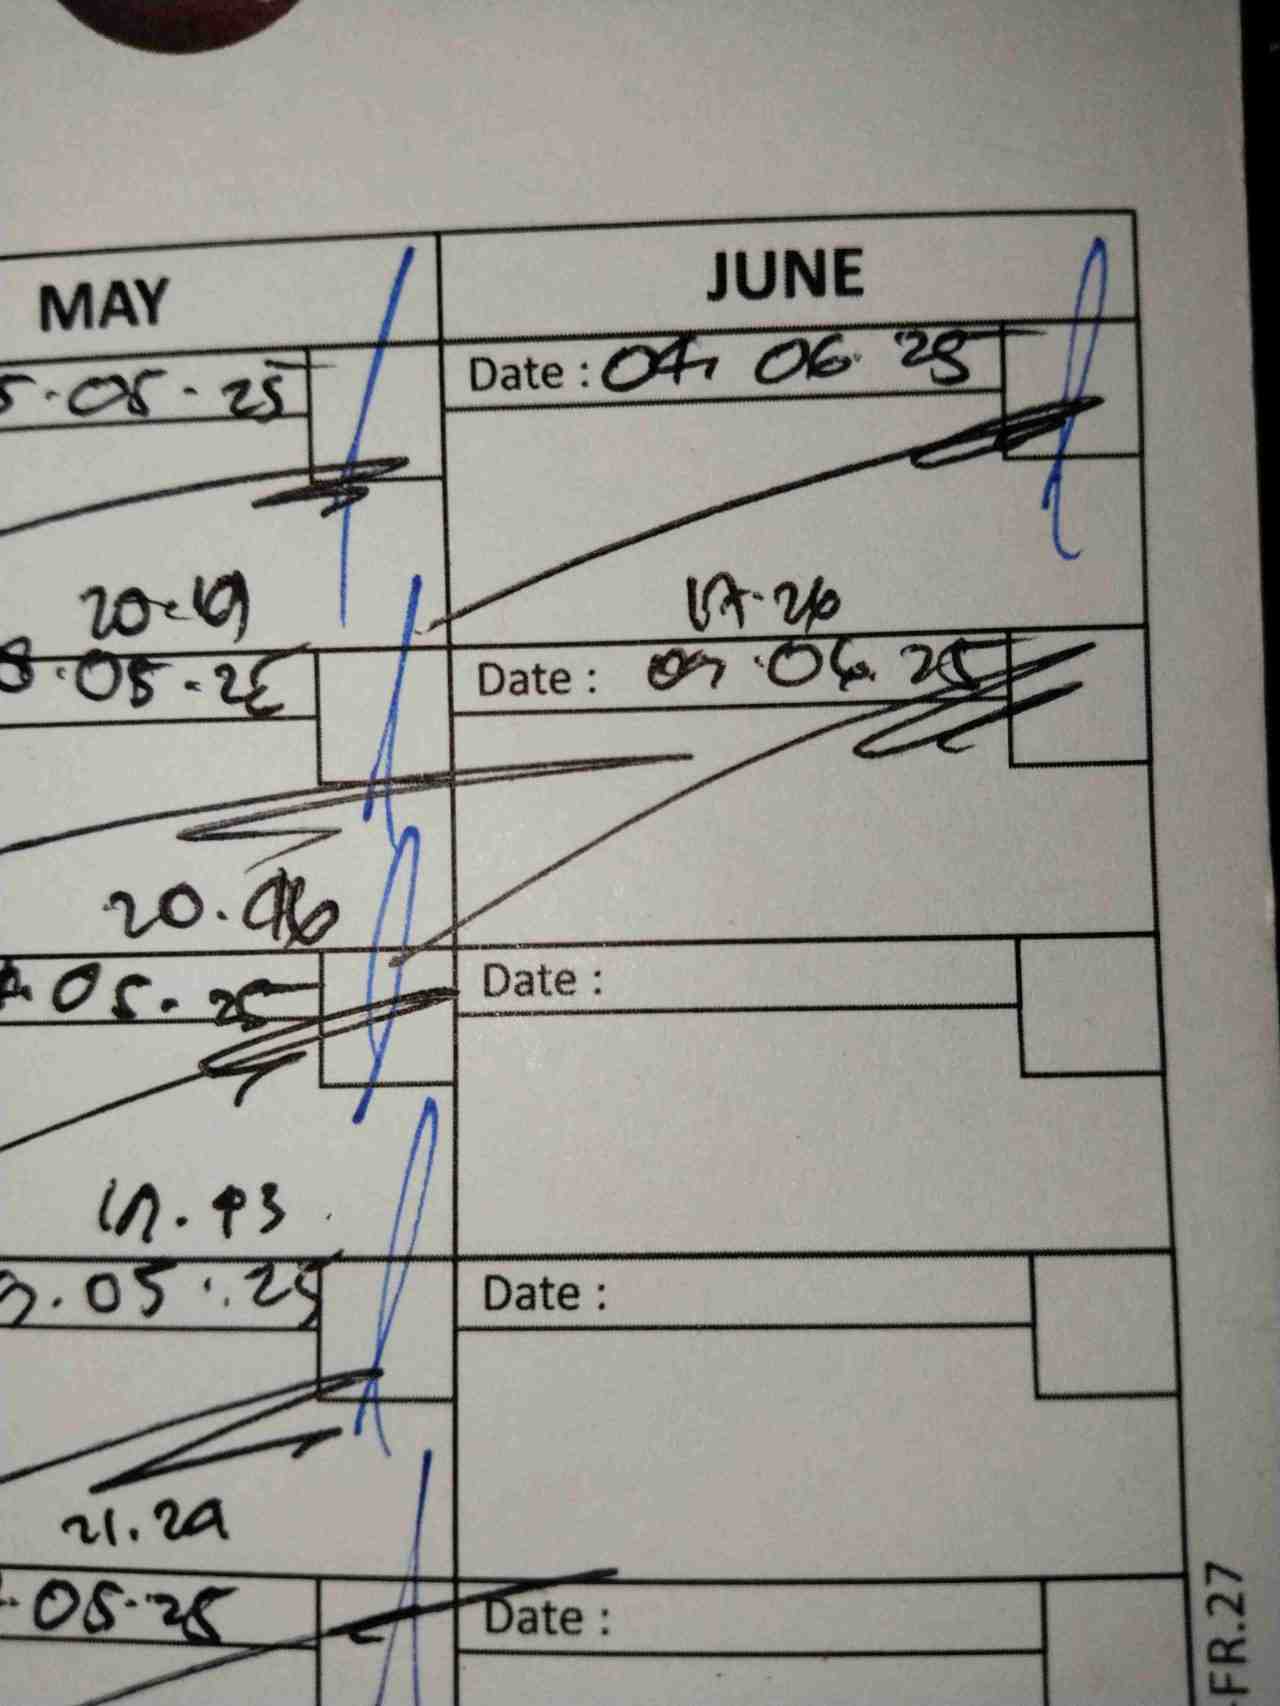 MAY JUNE
5.05.25 Date : 04 06 25
20.19 17.26
8.05.25 Date : 06.25
20.46
05.25 Date :
.43
.05.25 Date :
21.29
.05.25 Date :
FR.27